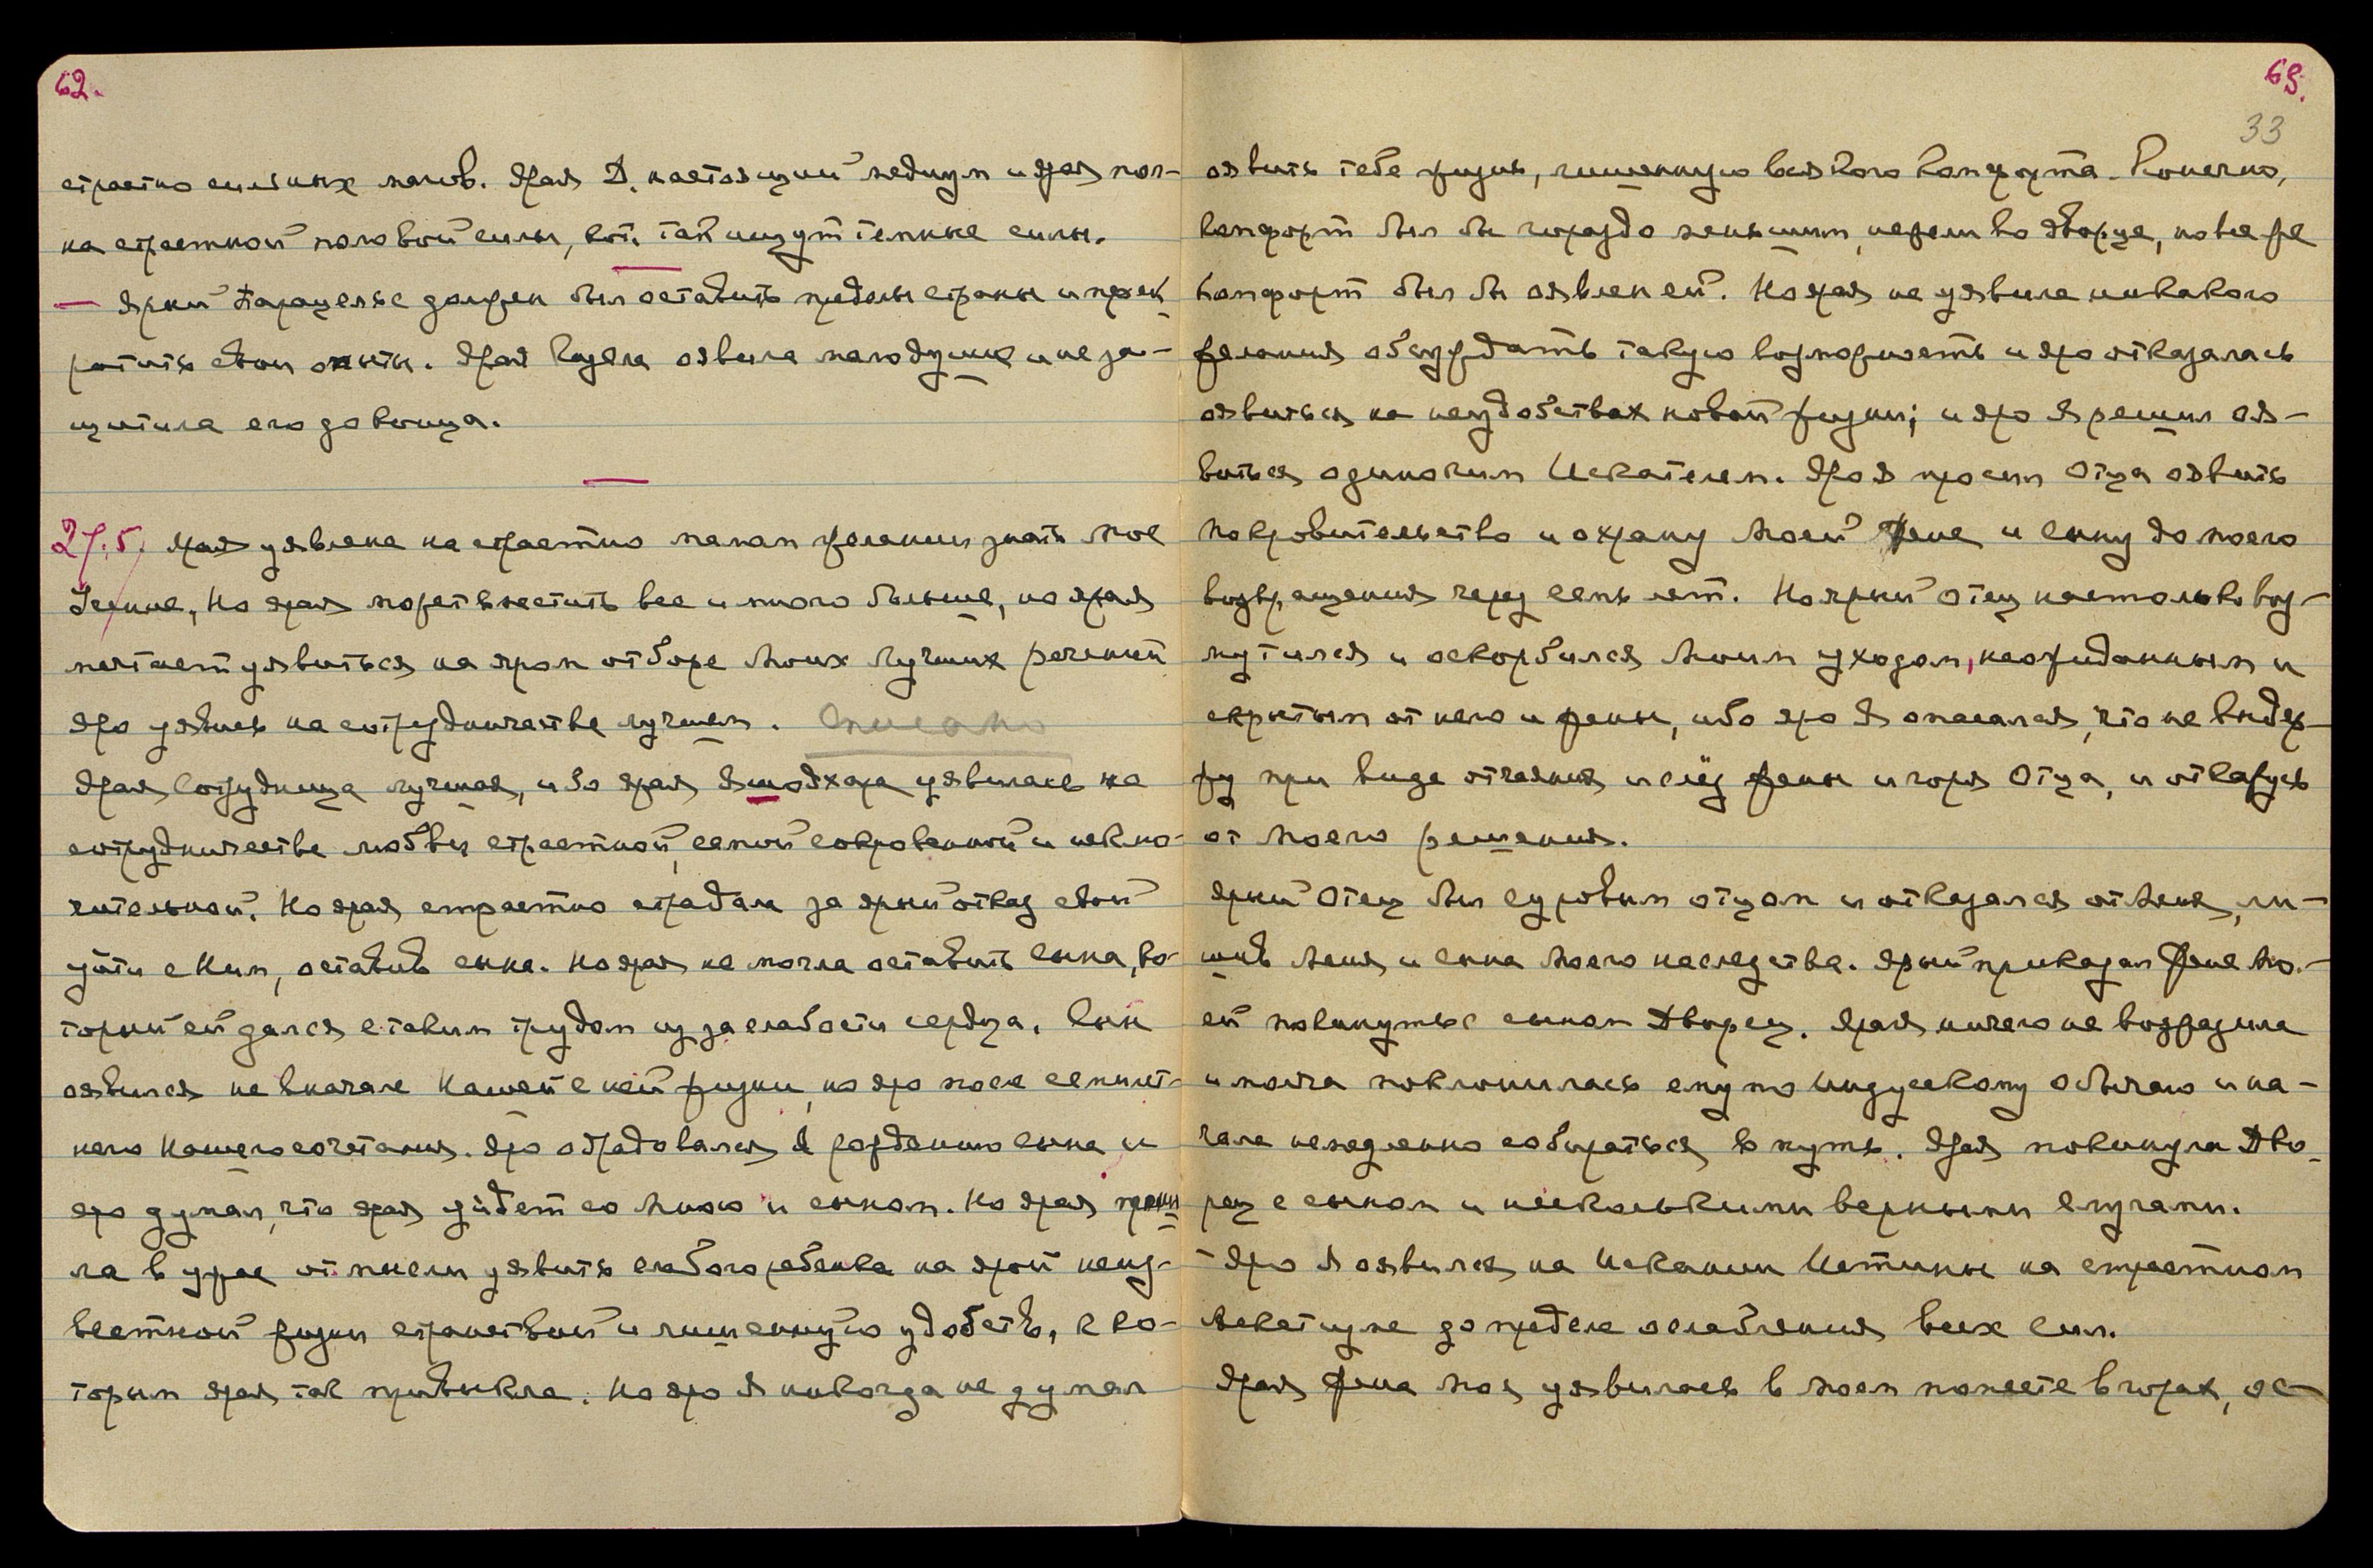 62.
страстно сильных магов. Ярая Д. настоящий медиум и ярая пол-
на страстной половой силы, вот так ищут темные силы.
— Ярый Парацельс должен был оставить пределы страны и прек
ратить свои опыты. Ярая Козела оявила малодушие и не за-
щитила его до конца.
27.5. Ярая уявлена на страстно малом желании знать Мое
Учение, Но ярая может вместить все и много больше, но ярая
мечтает уявиться на яром отборе Моих Лучших речений
яро уявись на сотрудничестве лучшем. Списано
Ярая Сотрудница лучшая, ибо ярая Яшодхара уявилась на
сотрудничестве любви страстной, самой сокровенной и исклю-
чительной. Но ярая страстно страдала за ярый отказ свой
уйти с Ним, оставив сына. Но ярая не могла оставить Сына, ко-
торый ей дался с таким трудом из за слабости сердца. Сын
оявился не вначале Нашей с ней жизни, но яро после семилет-
него Нашего сочетания. Яро обрадовался Я рождению Сына и
яро думал, что ярая уйдет со Мною и сыном. Но ярая приш
ла в ужас от мысли уявить слабого ребенка на ярой неиз-
вестной жизни странствий и лишенную удобств, к ко-
торым ярая так привыкла. Но яро Я никогда не думал
63.
33
оявить тебе жизнь, лишенную всякого комфорта. Конечно,
комфорт был бы гораздо меньшим, нежели во Дворце, но все же
комфорт был бы оявлен ей. Но ярая не уявила никакого
желания обсуждать такую возможность и яро отказалась
оявиться на неудобствах новой жизни; и яро Я решил оя-
виться одиноким Искателем. Яро Я просил Отца оявить
покровительство и охрану Моей Жене и Сыну до моего
возвращения через семь лет. Но ярый Отец настолько воз-
мутился и оскорбился Моим уходом, неожиданным и
скрытым от него и жены, ибо яро Я опасался, что не выдер-
жу при виде отчаяния и слёз жены и горя Отца, и откажусь
от Моего решения.
Ярый Отец был суровым отцом и отказался от Меня, ли-
шив Меня и сына Моего наследства. Ярый приказал Жене Мо-
ей покинуть с сыном Дворец. Ярая ничего не возразила
и молча поклонилась ему по Индусскому обычаю и на-
чала немедленно собираться в путь. Ярая покинула Дво-
рец с сыном и несколькими верными слугами.
- Яро Я оявился на Искании Истины на страстном
аскетизме до предела ослабления всех сил.
Ярая Жена Моя уявилась в Моем поместе в горах, ос-